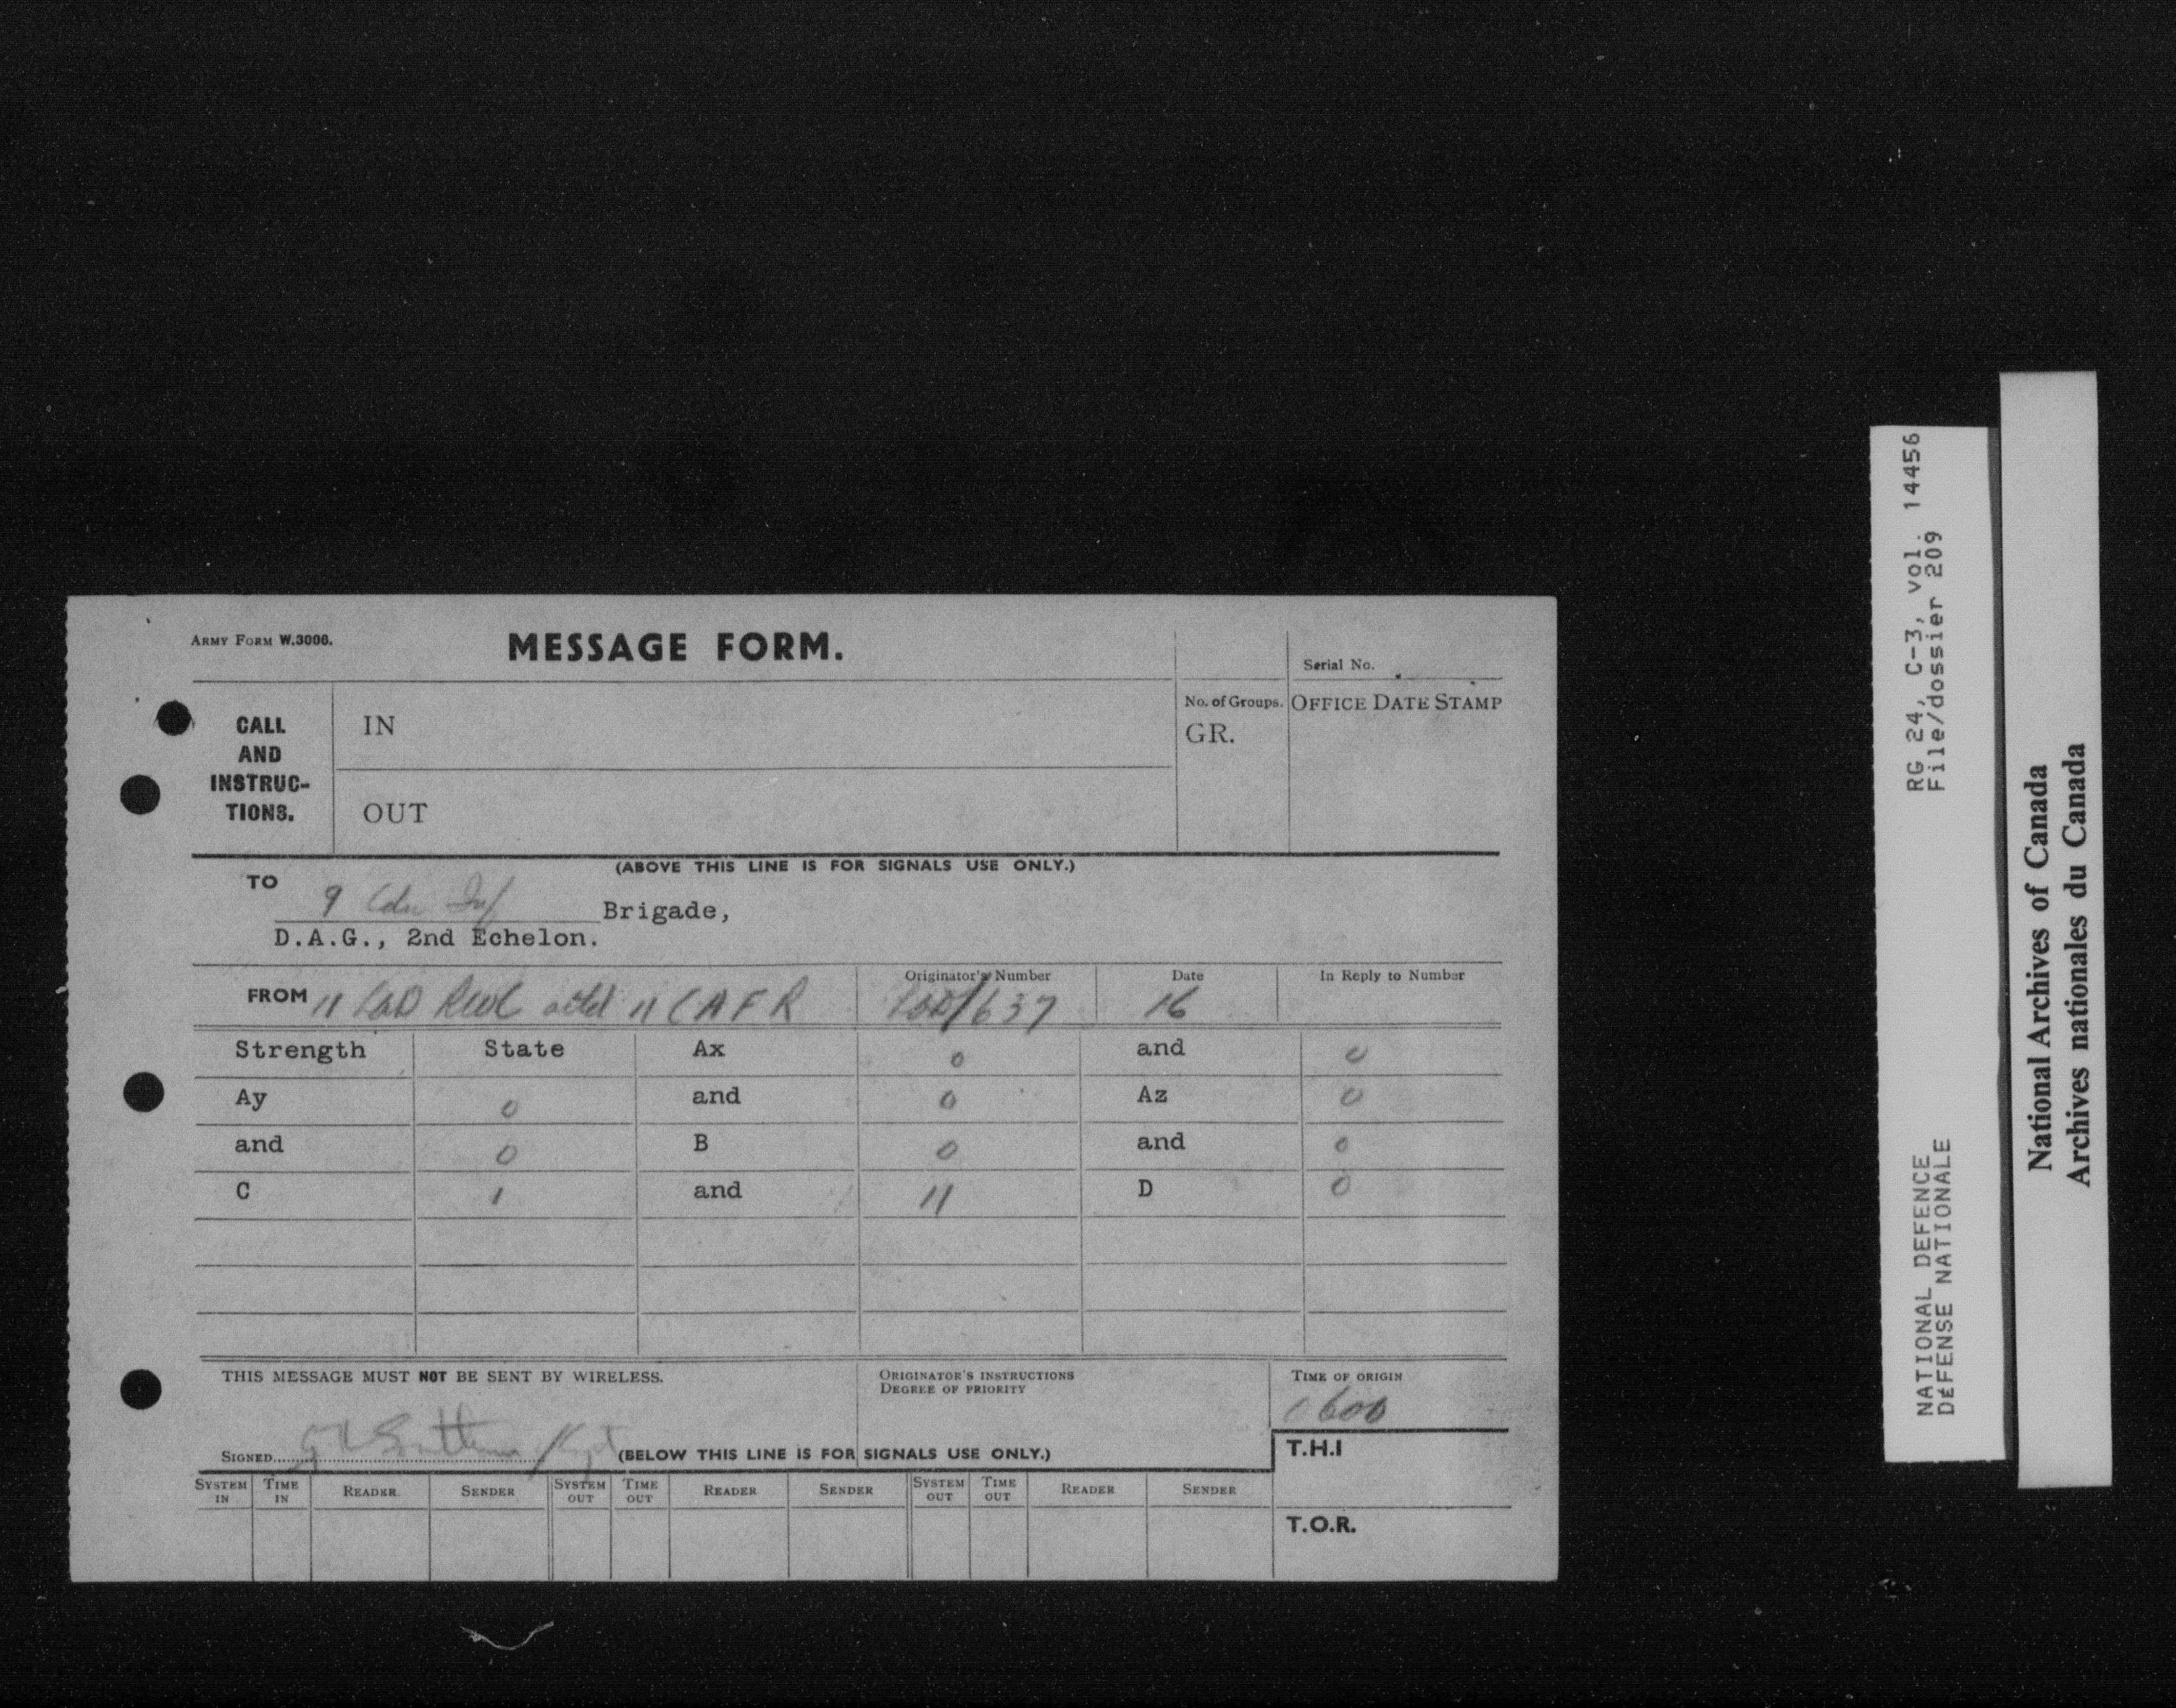 ARMY FORM W.3000.
MESSAGE FORM.
Serial No.
CALL AND INSTRUC-TIONS.
IN
No. of Groups.
GR.
OFFICE DATE STAMP
OUT
(ABOVE THIS LINE IS FOR SIGNALS USE ONLY.)
TO
9 Cdn Inf Brigade,
D.A.G., 2nd Echelon.
FROM 11 LAD attd 11 CAFR
Originator's Number
LAD/637
Date
16
In Reply to Number
Strength State Ax 0 and 0
Ay 0 and 0 Az 0
and 0 B 0 and 0
C 1 and 11 D 0
THIS MESSAGE MUST NOT BE SENT BY WIRELESS.
ORIGINATOR'S INSTRUCTIONS
DEGREE OF PRIORITY
TIME OF ORIGIN
0600
SIGNED
(BELOW THIS LINE IS FOR SIGNALS USE ONLY.)
T.H.I
SYSTEM IN TIME IN READER SENDER SYSTEM OUT TIME OUT READER SENDER SYSTEM OUT TIME OUT READER SENDER
T.O.R.
NATIONAL DEFENCE RG 24, C-3, vol. 14456
DÉFENSE NATIONALE File/dossier 209
National Archives of Canada
Archives nationales du Canada